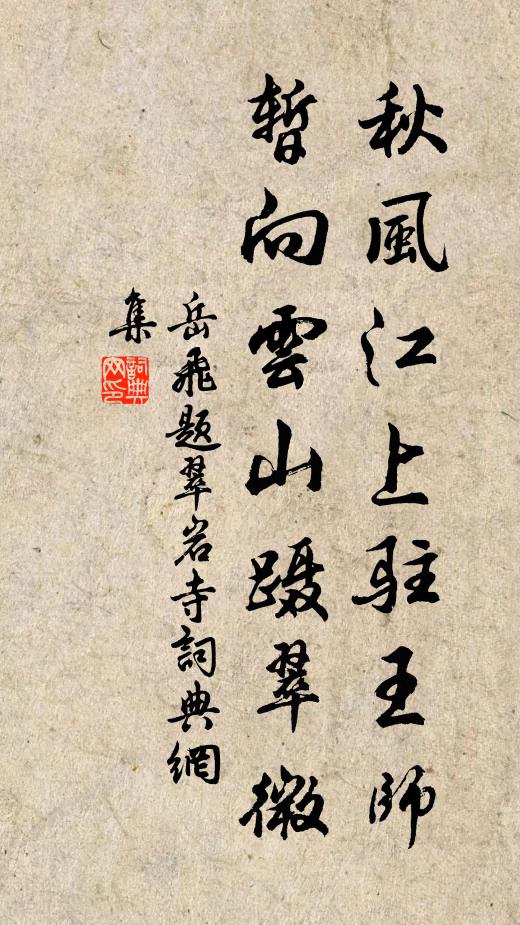 秋風江上駐王師
暫向雲山蹑翠微
岳飛题翠岩寺詞典網
集
詞典網印